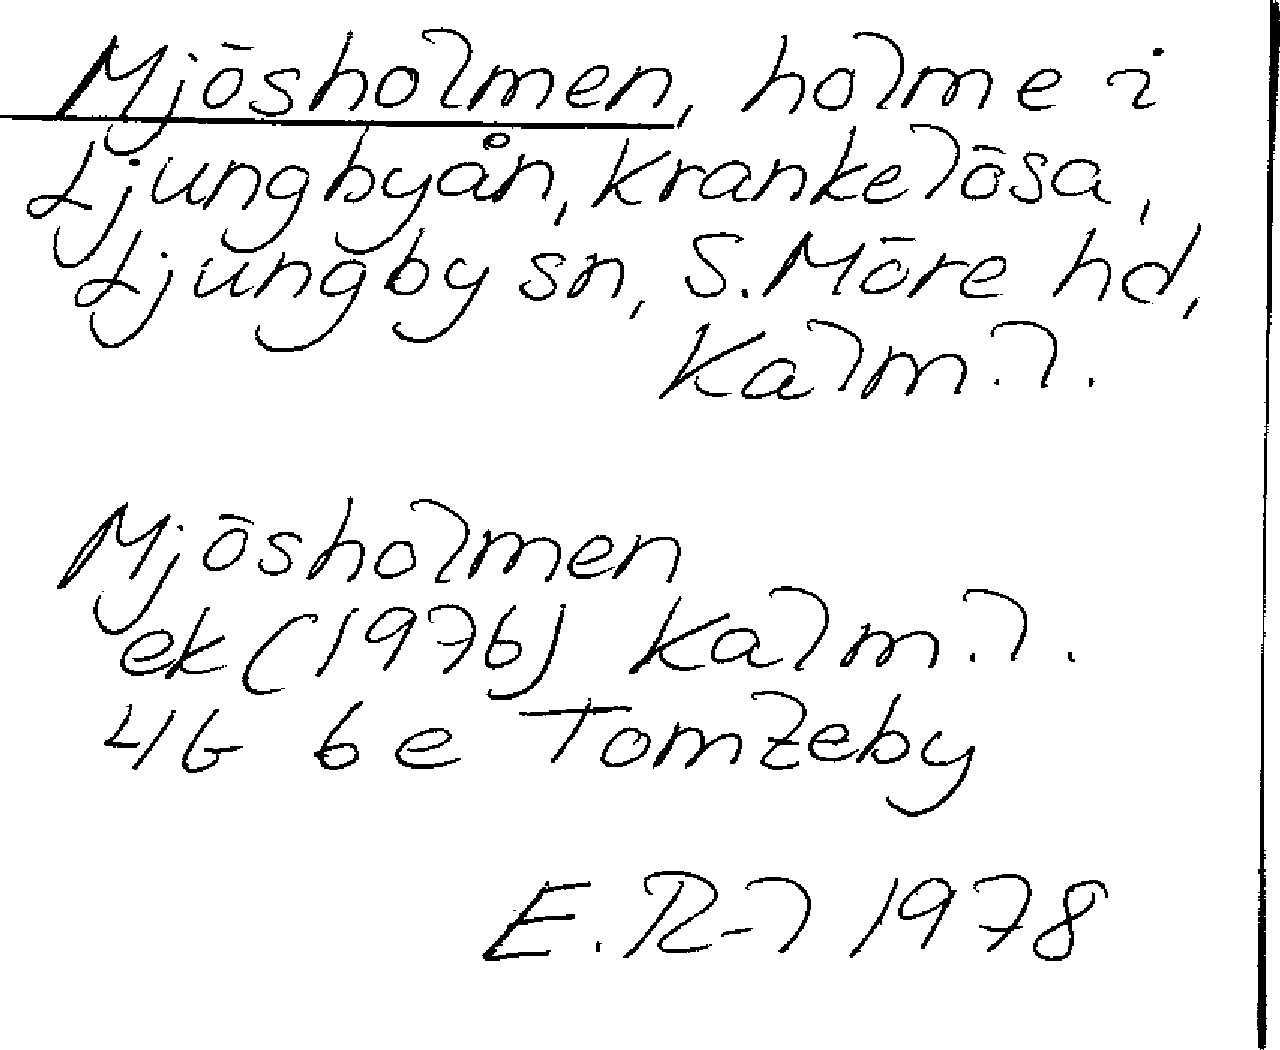 Mjösholmen, holme i
Ljungbyån, Krankelösa,
Ljungby sn, S. Möre hd,
Kalm. l.
Mjösholmen
ek (1976) Kalm. l.
4G 6e Tomteby
E. R-l 1978